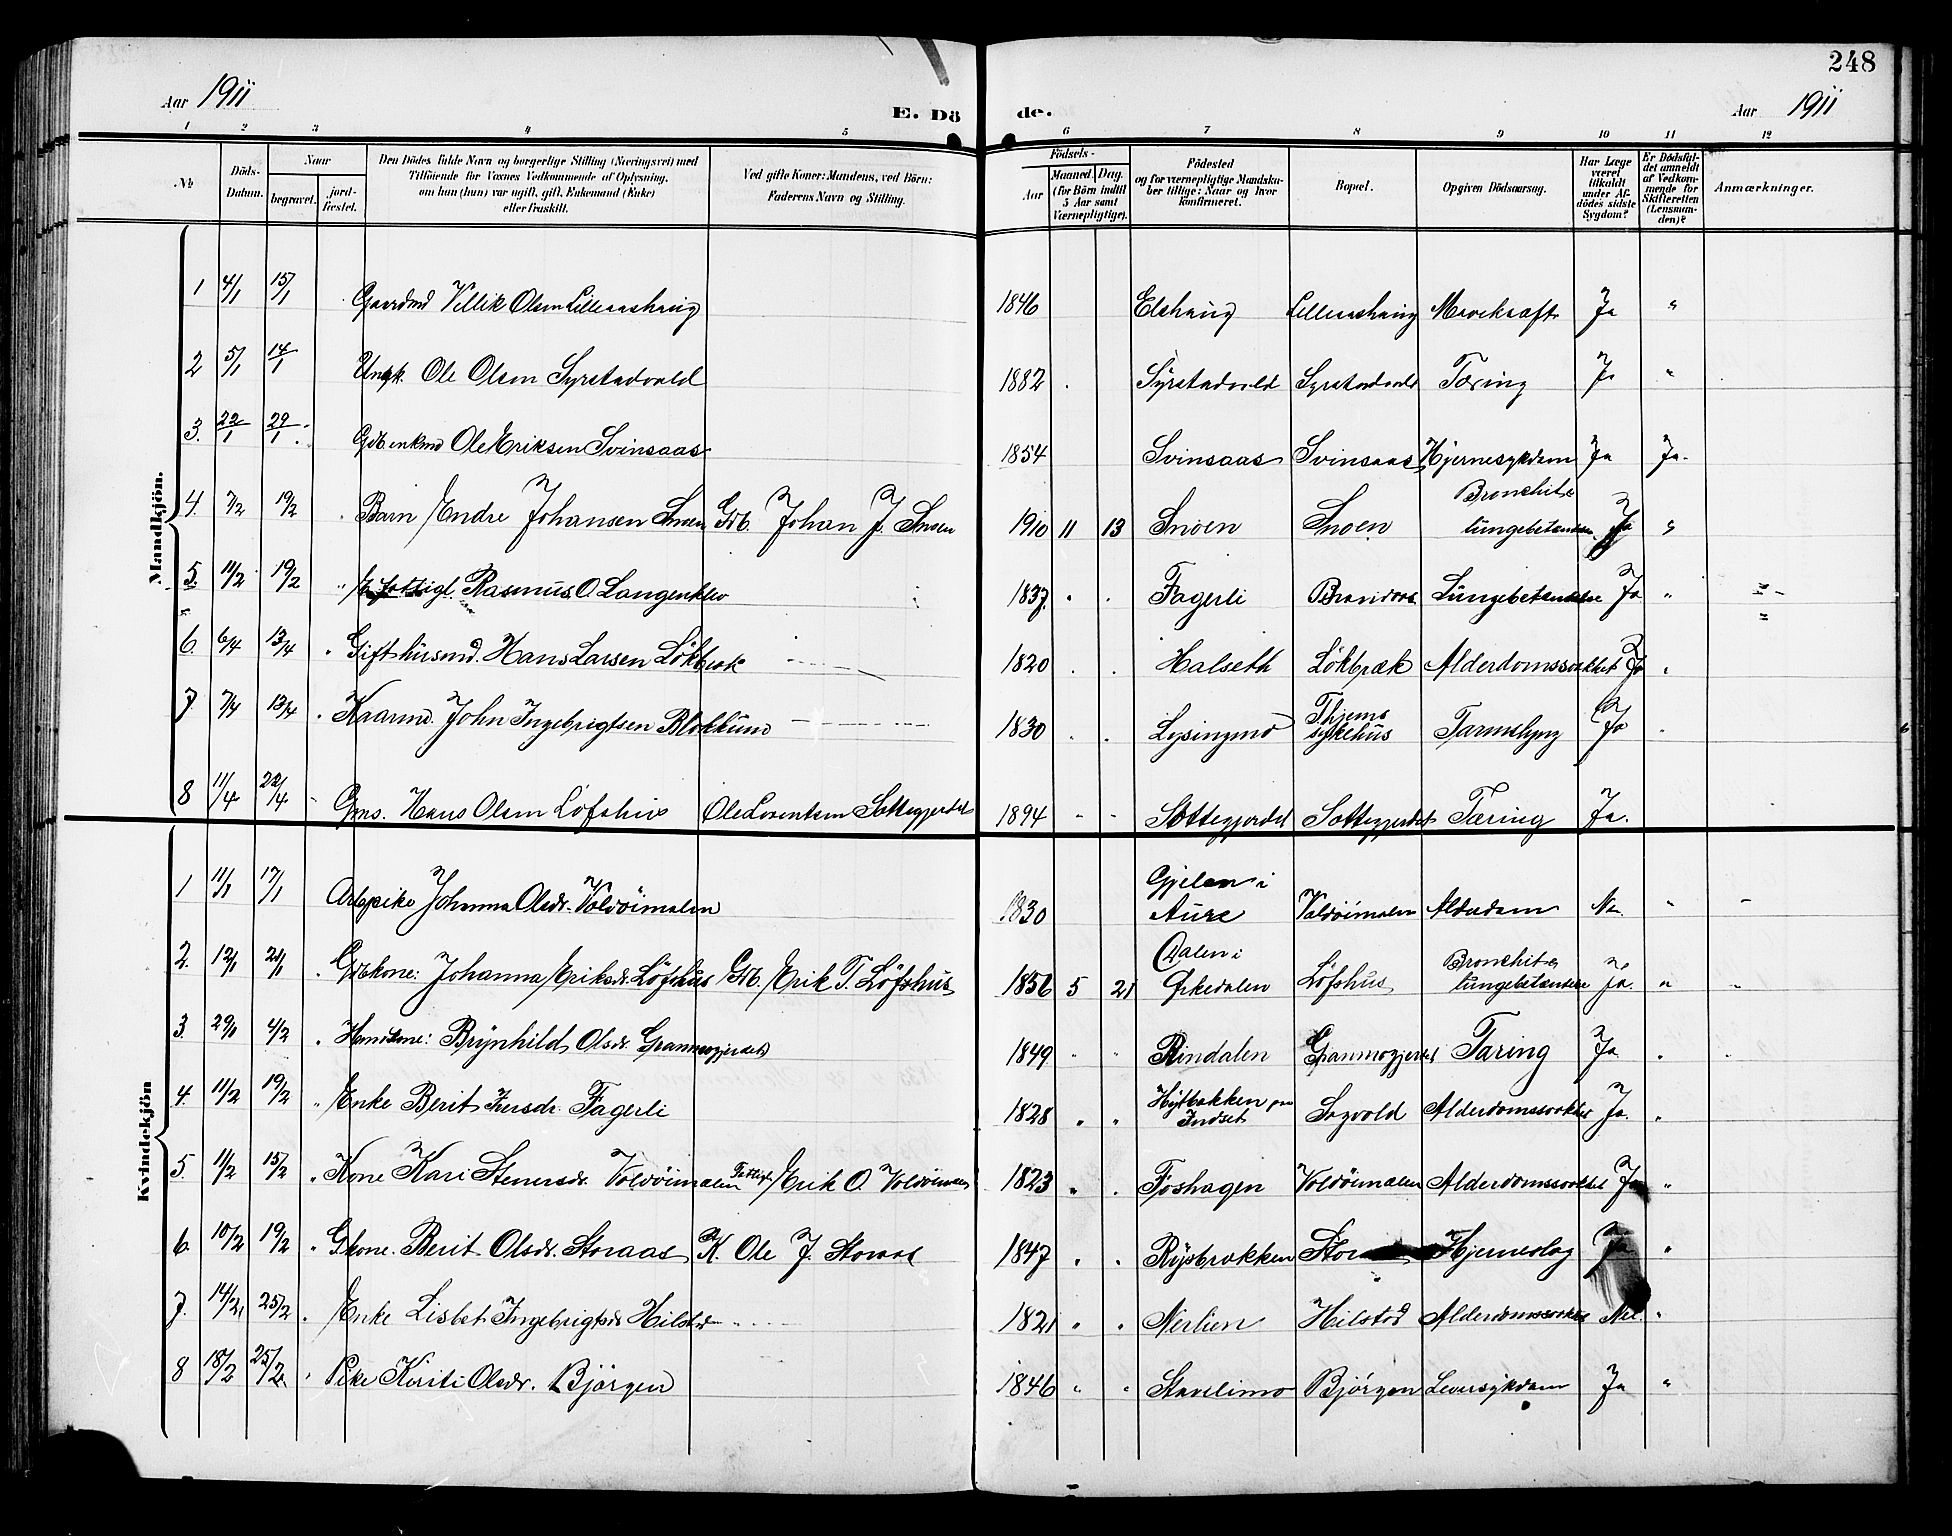 248
Aar 1911
E. Dö de.
Aar 1911
1 2 3 4 5 6 7 8 9 10 11 12
No
Döds-Datum.
Naar
begravet.
jord-fæstet.
Den Dödes fulde Navn og borgerlige Stilling (Næringsvei) med
Tilföiende for Voxnes Vedkommende af Oplysning,
om han (hun) var ugift, gift, Enkemand (Enke)
eller fraskilt.
Ved gifte Koner: Mandens, ved Börn:
Faderens Navn og Stilling.
Födsels-
Aar
Maaned. Dag.
(for Börn indtil
5 Aar samt
Værnepligtige).
Födested
og for værnepligtige Mandskaber tillige: Naar og hvor
konfirmeret.
Bopæl.
Opgiven Dödsaarsag.
Har Læge
været
tilkaldt
under Afdödes sidste
Sygdom?
Er Dödsfaldet anmeldt
af Vedkommende for
Skifteretten
(Lensmanden)?
Anmærkninger.
Mandkjön.
1 4/1 15/1 Gaardmd Villik Olsen Lilleaashaug 1846 Elshaug Lilleaashaug Mavekræft Ja "
2 5/1 14/1 Ungk. Ole Olsen Syrstadvold 1882 Syrstadvold Syrstadvold Tæring Ja "
3. 22/1 29/1 Gdb enkmd Ole Eriksen Svinsaas 1854 Svinsaas Svinsaas Hjernesykdom Ja Ja.
4. 7/2 19/2 Barn Endre Johansen Snoen Gdb. Johan J. Snoen 1910 11 13 Snoen Snoen Bronchit & lungebetændelse Ja "
5. 11/2 19/2 Rasmus O Langenklev 1837 Fagerli Lungebetændelse Ja "
6. 6/4 13/4 Gift husmd. Hans Larsen Lökbæk 1820 Halseth Lökbæk Alderdomssvakhet Ja
7 7/4 13/4 Kaarmd. John Ingebrigtsen Blokkum 1830 Lysingmo Thjems sykehus Tarmslyng Ja
8 11/4 22/4 Gms. Hans Olsen Löfshus Ole Lorentsen Sottegjerdet 1894 Sottegjerdet Sottegjerdet Tæring Ja.
Kvindekjön
1 11/1 17/1 Arbpike Johanna Olsdr. Voldöimalen 1830 Gjelan i Aure Voldöimalen Alderdom Nei "
2. 12/1 21/1 Gdbkone: Johanna Eriksdr. Löfshus Gdb. Erik T. Löfshus 1856 5 21 Dalen i Orkedalen Löfshus Bronchit & lungebetændelse Ja "
3. 29/1 4/2 Brynhild Olsdr. Granmogjerdet 1849 Rindalen Granmogjerdet Tæring Ja "
4. 11/2 19/2 Enke Berit Iversdr. Fagerli 1828 Hytbakken paa Indset Sagvold Alderdomssvakhet Ja. "
5. 11/2 15/2 Kone Kari Stenersdr. Voldöimalen Fattigl. Erik O. Voldöimalen 1823 Foshagen Voldöimalen Alderdomssvakhet Ja "
6. 10/2 19/2 Gkone. Berit Olsdr. Storaas K. Ole J. Storaas 1847 Rysbrækken Hjerneslag Ja "
7. 14/2 25/2 Enke Lisbet Ingebrigtsdr Hilstad 1821 Nerlien Hilstad Alderdomssvakhet Nei. "
8 18/2 25/2 Pike Kirsti Olsdr. Björgen 1846 Stavelimo Björgen Leversykdom Ja "